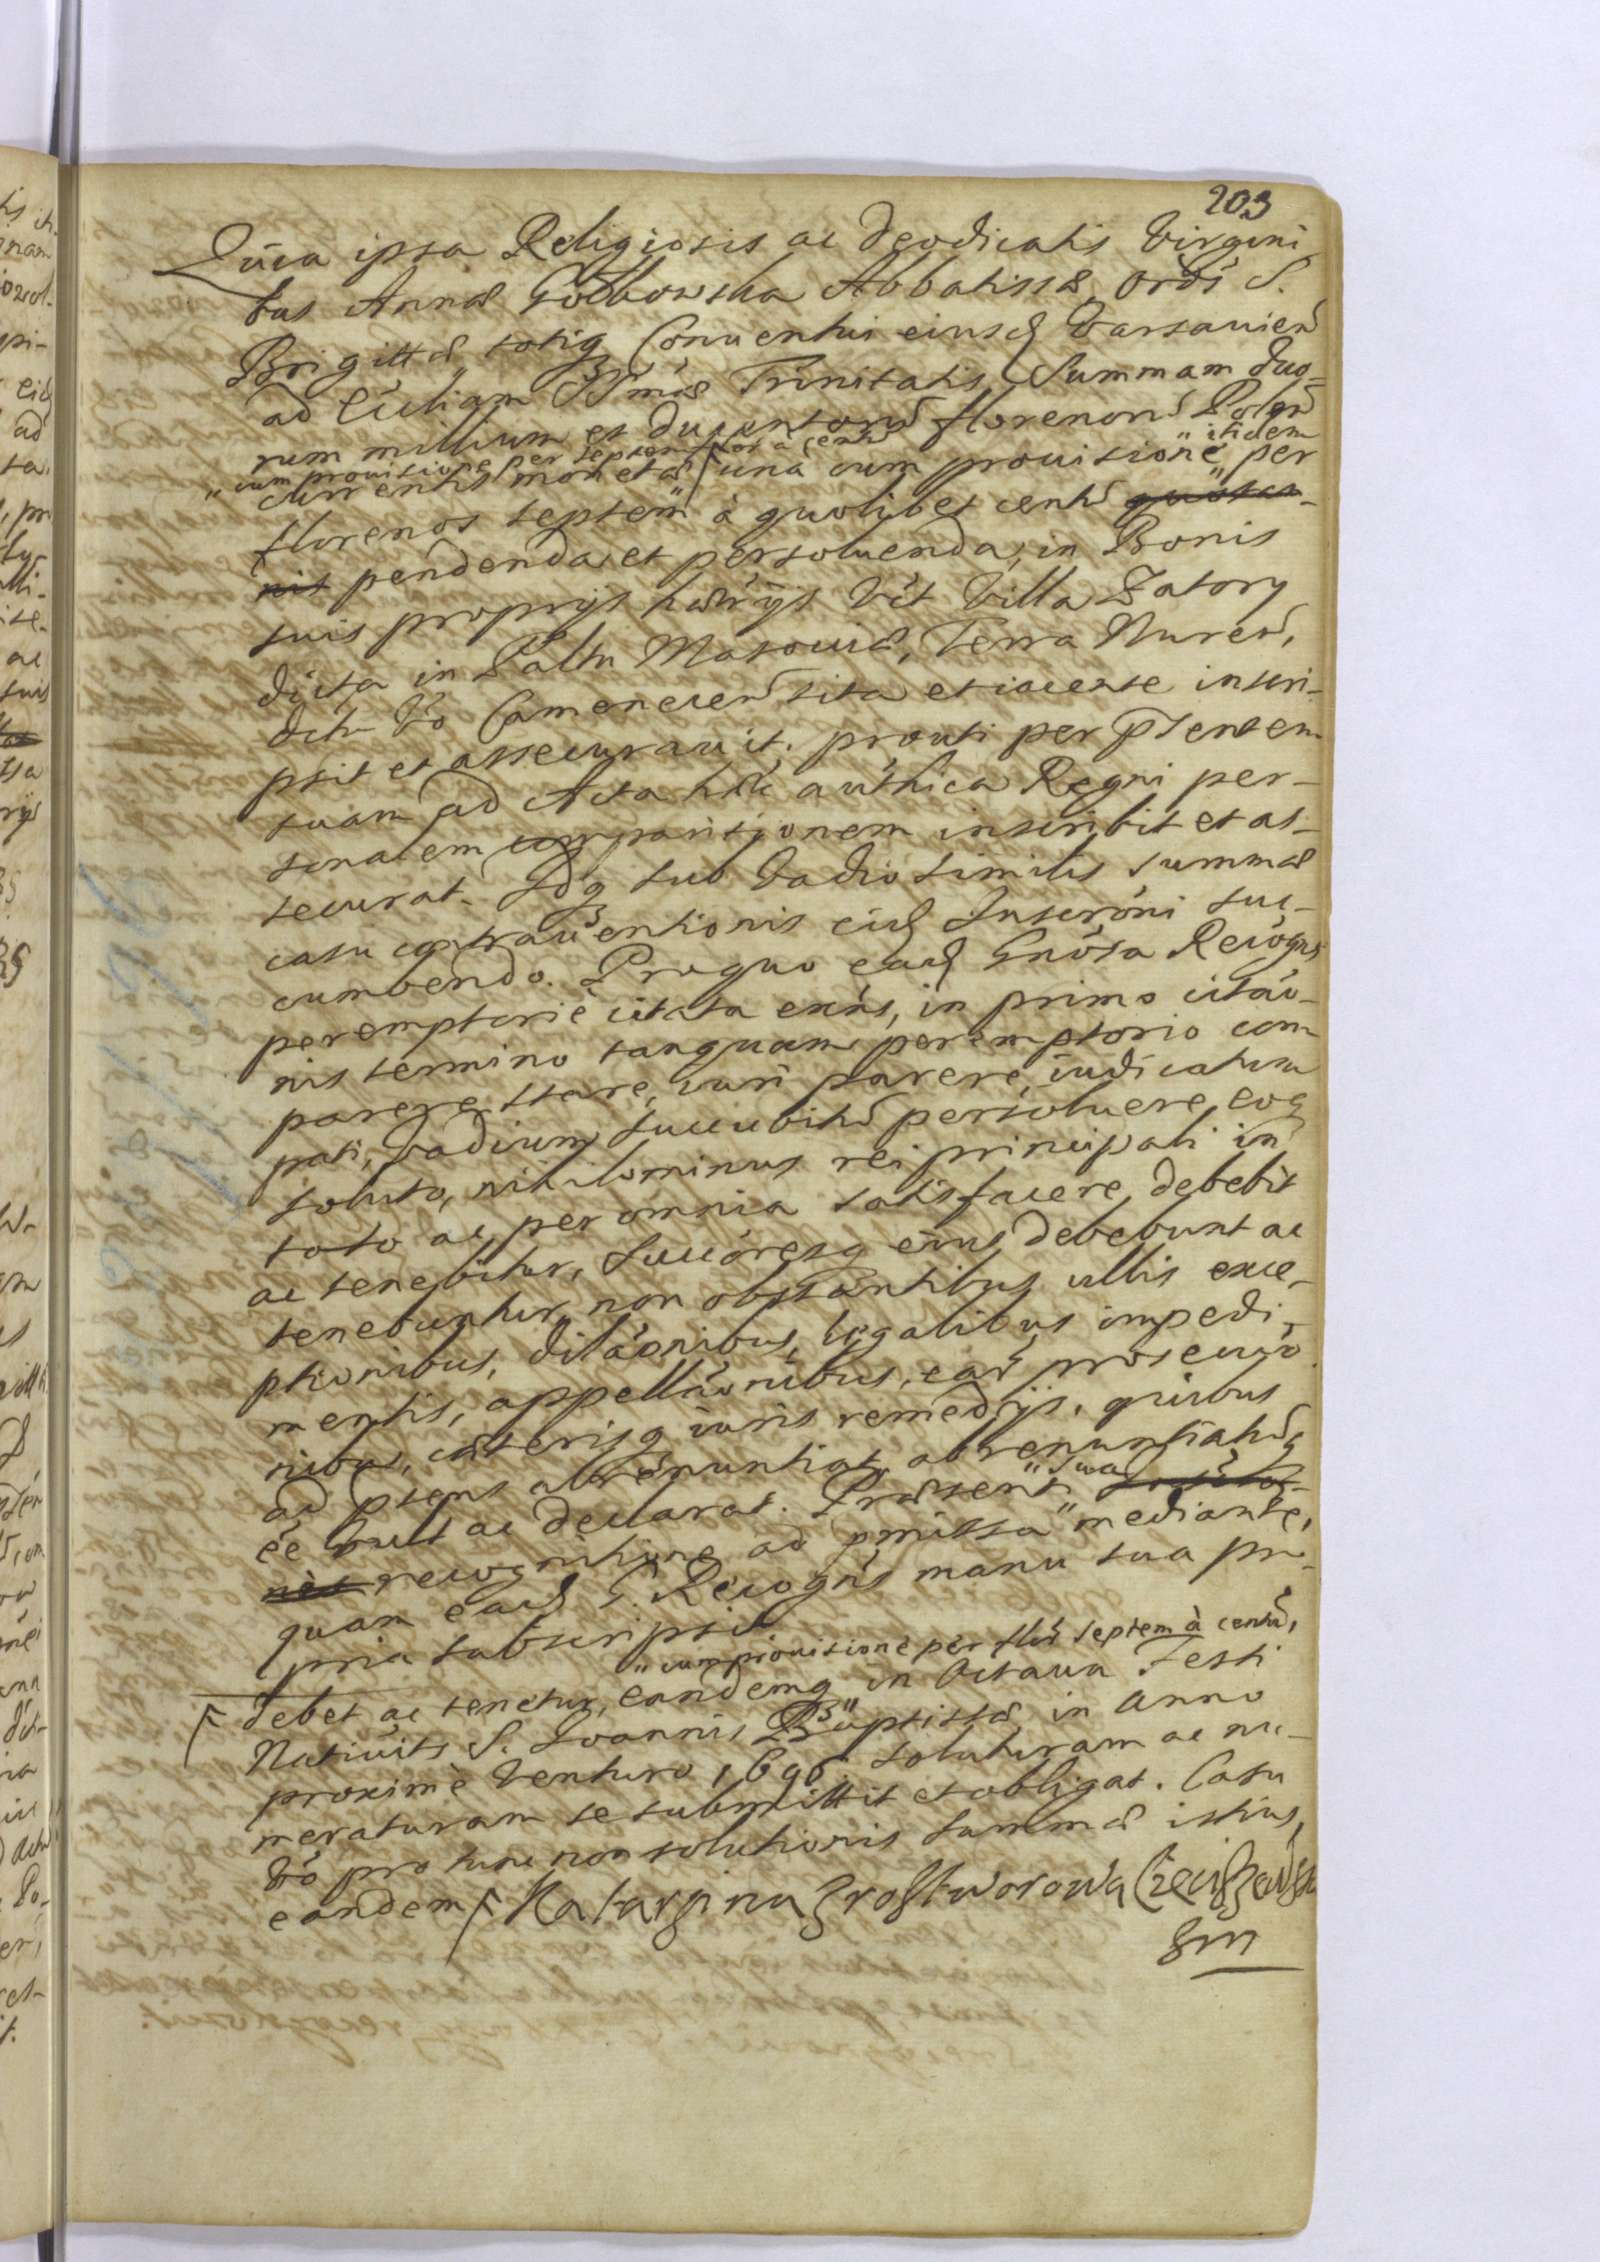 203
Quia ipsa Religiosis ac Deodicatis Virgini
bus Annæ Gołbowska Abbatissæ, Ordis S.
Brigittæ totiq3 Conuentui eiusd Varsauien
ad Eccliam SSmæ Trinitatis Summam duo-
rum millium et ducentorū florenorū Polon
"cum prouisione per septem flor à centū "itidem
currentis monetæ una cum prouisione" per
florenos septem à quolibet centū quotan-
nis pendenda et persoluenda, in Bonis
suis proprijs hærrijs Vct Villa Zatory
dicta in Palttu Masouiæ, Terra Nuren,
Dttu Vo Camenecen sita et iacente inscri-
psit et assecurauit. prouti per pntem
suam ad Acta hæc authica Regni per-
sonalem comparitionem inscribit et as-
securat. Idq3 sub Vadio similis summæ
casu contrauentionis eid Inscroni suc-
cumbendo. Pro quo ead Gnosa Recogns
peremptoriè citata exns, in primo citao-
nis termino tanquam peremptorio com
parere, stare, iuri parere, iudicatum
pati, Vadium succubitū persoluere, eoq
soluto, nihilominus rei principali in
toto ac per omnia satisfacere debebit
ac tenebitur, Succoresq eius debebunt ac
tenebuntur, non obstantibus ullis exce-
ptionibus, dilaonibus, legalibus impedi-
mentis, appellaonibus, ear prosecuo
nibus, cæterisq iuris remedijs. quibus
ad pnens abrenuntiat, abrenuntiatūq
"sua
ee vult ac declarat. Præsenti
recognitione ad pmissa" mediante,
quam ead G. Recogns manu sua pro-
pria subscripsit
"cum prouisione per flor septem à centū,
debet ac tenetur, eandemq in Octaua Festi
Natiuits S. Ioannis Baptistæ in anno
proximè Venturo, soluturam ac nu-
meraturam se submittit et obligat. Casu
Vo pro tunc non solutionis summæ istius,
eandem Katarzina Zrosztworowa Czeciszewska